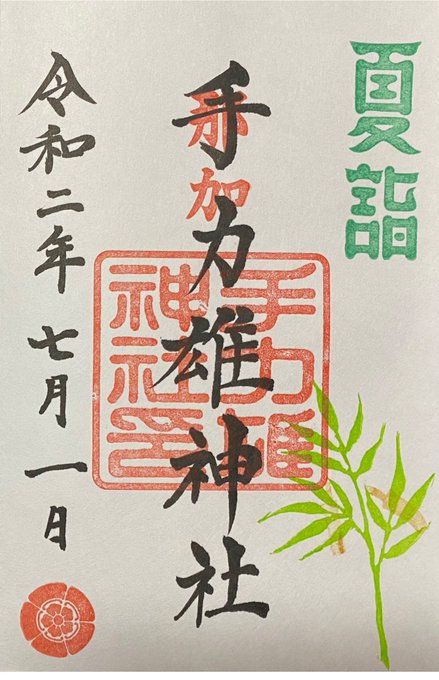 夏詣
那加
手力雄神社
手力雄
神社印
令和二年七月一日